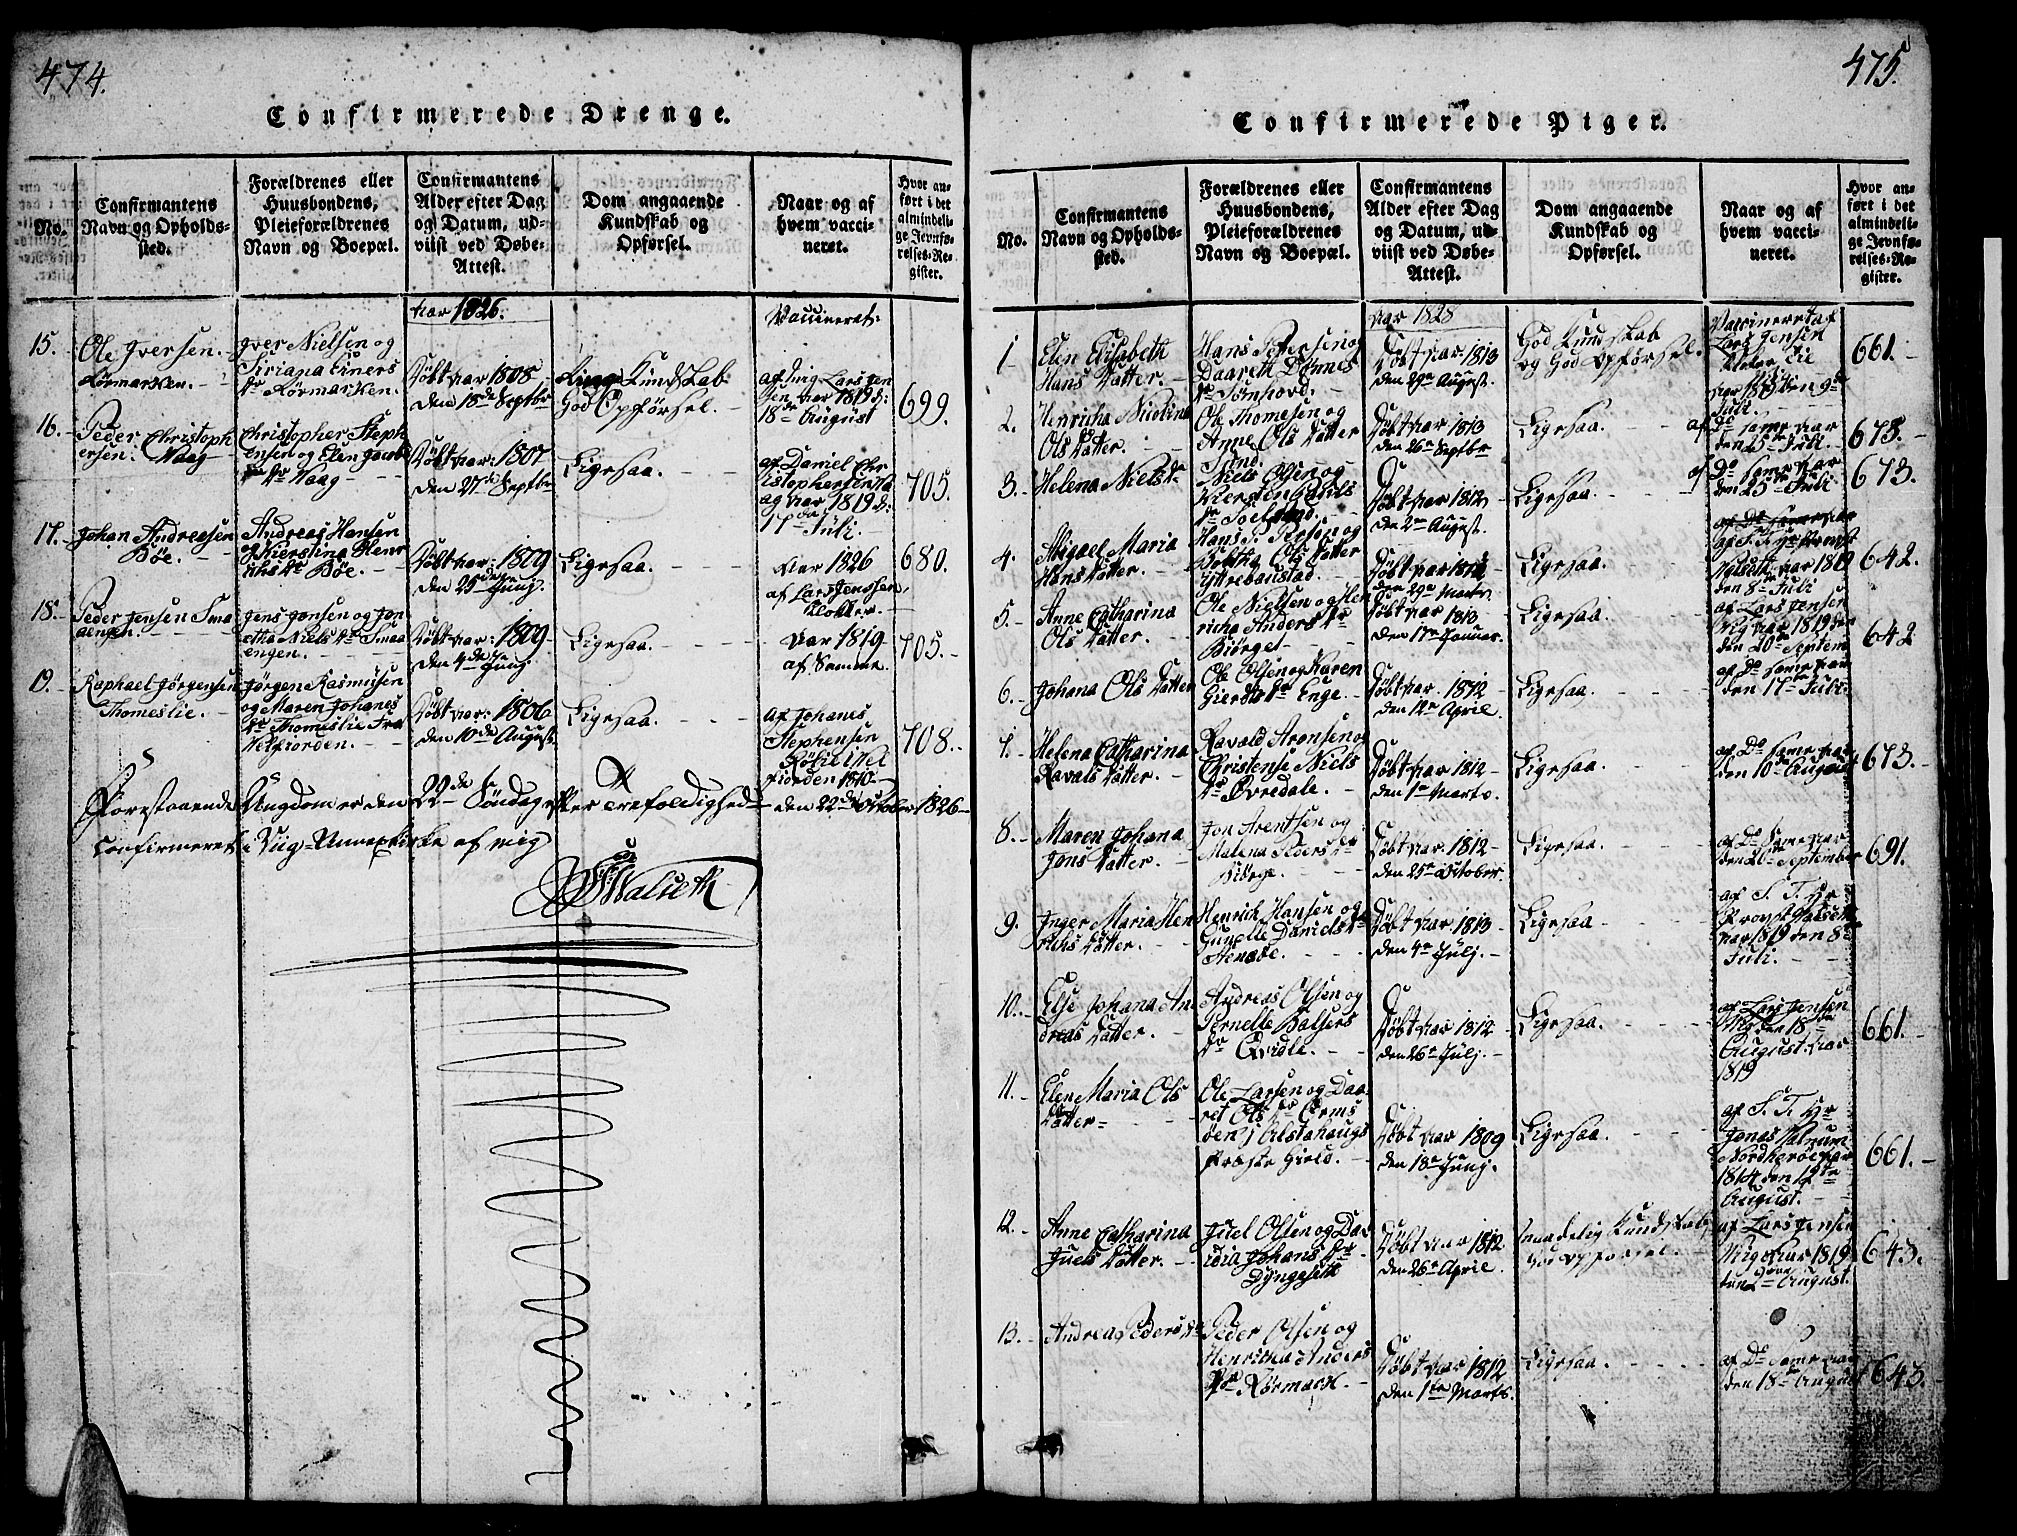 474.
Confirmerede Drenge.
No.
Confirmantens
Navn og Opholds-
sted.
Forældrenes eller
Huusbondens,
Pleieforældrenes
Navn og Boepæl.
Confirmantens
Alder efter Dag
og Datum, ud-
viist ved Døbe-
Attest.
Dom angaaende
Kundskab og
Opførsel.
Naar og af
hvem vacci-
neret.
Hvor an-
ført i det
almindeli-
ge Jevnfø-
relses-Re-
gister.
Aar 1826.
Vaccineret:
15.
Ole Iversen.
Kørmarken.
Iver Nielsen og
Siriana Einers
Dr Kørmarken.
Døbt aar 1808
den 18de Septbr
Kundskab
God Opførsel.
af Lars Jen
sen, aar 1819 d:
18de August
699.
16.
Peder Christoph
ersen. Waag
Christopher Steph
ensen og Elen Jacob
Dr Waag
Døbt aar: 1807
den 27de Septbr
Ligesaa.
af Daniel Chr
istophersen Wa
ag aar 1819 d:
17de Juli.
705.
17.
Johan Andreesen
Bøe.
Andreas Hansen
og Kierstina Henr
ichs Dr Bøe.
Døbt aar: 1809
den 25de Junj.
Ligesaa.
Aar 1826
af Lars Jenssen,
Klokker.
680.
18.
Peder Jensen Sma
aengen.
Jens Jensen og Jon
etha Niels Dr Smaa
engen.
Døbt aar: 1809
den 4de Junj
Ligesaa.
Aar 1819
af Samme.
705.
19.
Raphael Jørgensen
Thomeslie.
Jørgen Rasmusen
og Maren Johanes
Dr Thomeslie Fra
Velfiorden.
Døbt aar: 1806
den 10de August
Ligesaa.
af Johanes
Stephensen
Kølie i Vel
fiorden 1810
708.
Forestaaende Ungdom er den 22de Søndag efter Trefoldighed den 22de October 1826
Confirmeret i Viig-Annexkirke af mig
475.
Confirmerede Piger.
No.
Confirmantens
Navn og Opholds-
sted.
Forældrenes eller
Huusbondens,
Pleieforældrenes
Navn og Boepæl.
Confirmantens
Alder efter Dag
og Datum, ud-
viist ved Døbe-
Attest.
Dom angaaende
Kundskab og
Opførsel.
Naar og af
hvem vacci-
neret.
Hvor an-
ført i det
almindeli-
ge Jevnfø-
relses-Re-
gister.
Aar 1828
1
Elen Elisabeth
Hans Datter.
Hans Pettersen og
Daareth Tønnes
Dr Sømhovd.
Døbt aar: 1813
den 29de August.
God Kundskab
og God Opførsel.
Vaccineret af
Lars Jensen
Juli.
661.
2.
Henricha Nicolina
Ols Datter.
Ole Thomesen og
Anne Ols Datter
Sund.
Døbt aar 1813
den 26de Septbr
Ligesaa.
af Do samme aar
den 25de Juli
673.
3.
Helena Niels Dr
Niels Olsen og
Kiersten Pouls
Døbt aar 1812
den 2den August.
Ligesaa.
af Do samme aar
den 25de Juli
673.
4.
Abigael Maria
Hans Datter.
Hans P. Persen og
Ols Datter
Yttrebaustad.
Døbt aar 1812
den 29de Marts.
Ligesaa.
den 8de Juli
642.
5.
Anne Catharina
Ols Datter.
Ole Nielsen og Hen
richa Anders Dr
Biørget
Døbt aar 1813
den 17de Januar.
Ligesaa.
af Lars Jensen
Wig aar 1819 den
den 20de Septem
642
6.
Johana Ols Datter
Ole Olsen og Karen
Gierdts Dr Enge.
Døbt aar. 1812
den 12te April.
Ligesaa.
af Do samme aar
den 17de Juli
7.
Helena Catharina
Ravals Datter.
Ravald Aronsen og
Christense Niels
Dr Øvredale.
Døbt aar 1812
den 1te Marts.
Ligesaa.
af Do samme aar
den 10de August
673.
8.
Maren Johana
Jons Datter.
Jon Arentsen og
Malena Peders Dr
Biørge.
Døbt aar. 1812
den 25de October.
Ligesaa.
af Do samme aar
den 26de September
691.
9.
Inger Maria Hen
richs Datter.
Henrich Hansen og
Gunelle Daniels Dr
Stensøe.
Døbt aar 1813
den 4de Julj.
Ligesaa
af S. T. Hr
Provst Walseth
aar 1819 den 8de
Juli.
10.
Else Johana An
dreas Datter.
Andreas Olsen og
Pernelle Balsers
Dr Qvidle.
Døbt aar 1812
den 26de Julj.
Ligesaa.
af Lars Jensen
Wig den 18de
August aar
1819
661.
11.
Elen Maria Ols
Datter
Ole Larsen og Daa
ret Ols Dr Orms
øen i Alstahaugs
Præste Gield.
Døbt aar 1809
den 18de Junj.
Ligesaa.
af S. T. Hr
Jonas
Nordherøe aar
1814 den 12te
August.
661.
12.
Anne Catharina
Juels Datter.
Juel Olsen og Da
rdia Johans Dr
Dyngesett
Døbt aar 1812
den 26de April.
Maadelig Kundskab,
God Opførsel.
af Lars Jensen
Wig Aar 1819
den 2den August.
643.
13.
Andrea Peders Dr
Peder Olsen og
Henricha Anders
Dr Kørmark.
Døbt aar 1812
den 1te Marts.
Ligesaa.
af Do samme aar
den 18de August
643.